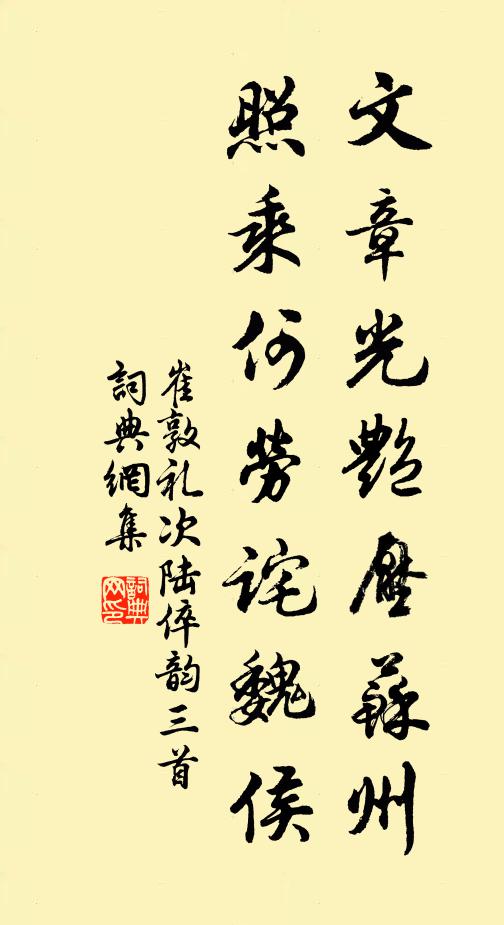 文章光艷壓蘇州
照乘何勞詫魏侯
崔敦礼次陆倅韵三首
詞典網集
詞典网印